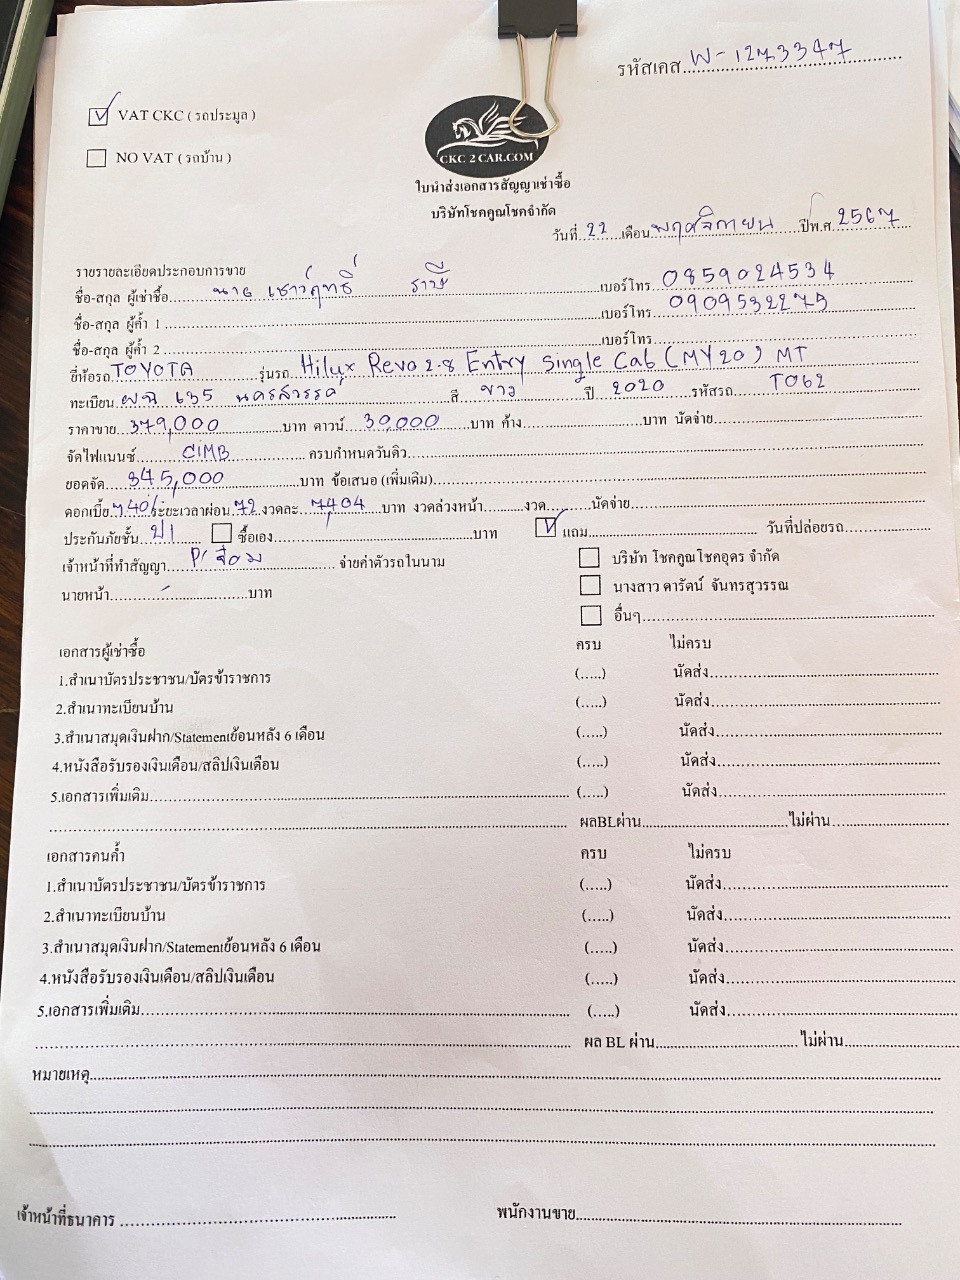 รหัสเคส W-1273347
☑ VAT CKC ( รถประมูล )
☐ NO VAT ( รถบ้าน )
CKC 2 CAR.COM
ใบนำส่งเอกสารสัญญาเช่าซื้อ
บริษัทโชคคูณโชคจำกัด
วันที่ 22 เดือน พฤศจิกายน ปีพ.ศ 2567
รายรายละเอียดประกอบการขาย
ชื่อ-สกุล ผู้เช่าซื้อ นาย เชาว์ฤทธิ์ ราษี เบอร์โทร 0859024534
ชื่อ-สกุล ผู้ค้ำ 1 เบอร์โทร 0909532275
ชื่อ-สกุล ผู้ค้ำ 2 เบอร์โทร
ยี่ห้อรถ TOYOTA รุ่นรถ Hilux Revo 2.8 Entry Single Cab (MY20) MT
ทะเบียน ผฉ 635 นครสวรรค์ สี ขาว ปี 2020 รหัสรถ T062
ราคาขาย 379,000 บาท ดาวน์ 39,000 บาท ค้าง บาท นัดจ่าย
จัดไฟแนนซ์ CIMB ครบกำหนดวันดิว
ยอดจัด 345,000 บาท ข้อเสนอ (เพิ่มเติม)
ดอกเบี้ย ระยะเวลาผ่อน 72 งวดละ 7,404 บาท งวดล่วงหน้า งวด นัดจ่าย
ประกันภัยชั้น ป1 ☐ ซื้อเอง บาท ☑ แถม วันที่ปล่อยรถ
เจ้าหน้าที่ทำสัญญา จ่ายค่าตัวรถในนาม ☐ บริษัท โชคคูณโชคอุดร จำกัด
นายหน้า - บาท ☐ นางสาว ดารัตน์ จันทรสุวรรณ
☐ อื่นๆ
เอกสารผู้เช่าซื้อ ครบ ไม่ครบ
1.สำเนาบัตรประชาชน/บัตรข้าราชการ (.....) นัดส่ง
2.สำเนาทะเบียนบ้าน (.....) นัดส่ง
3.สำเนาสมุดเงินฝาก/Statementย้อนหลัง 6 เดือน (.....) นัดส่ง
4.หนังสือรับรองเงินเดือน/สลิปเงินเดือน (.....) นัดส่ง
5.เอกสารเพิ่มเติม (.....) นัดส่ง
ผลBLผ่าน ไม่ผ่าน
เอกสารคนค้ำ ครบ ไม่ครบ
1.สำเนาบัตรประชาชน/บัตรข้าราชการ (.....) นัดส่ง
2.สำเนาทะเบียนบ้าน (.....) นัดส่ง
3.สำเนาสมุดเงินฝาก/Statementย้อนหลัง 6 เดือน (.....) นัดส่ง
4.หนังสือรับรองเงินเดือน/สลิปเงินเดือน (.....) นัดส่ง
5.เอกสารเพิ่มเติม (.....) นัดส่ง
ผล BL ผ่าน ไม่ผ่าน
หมายเหตุ
เจ้าหน้าที่ธนาคาร พนักงานขาย